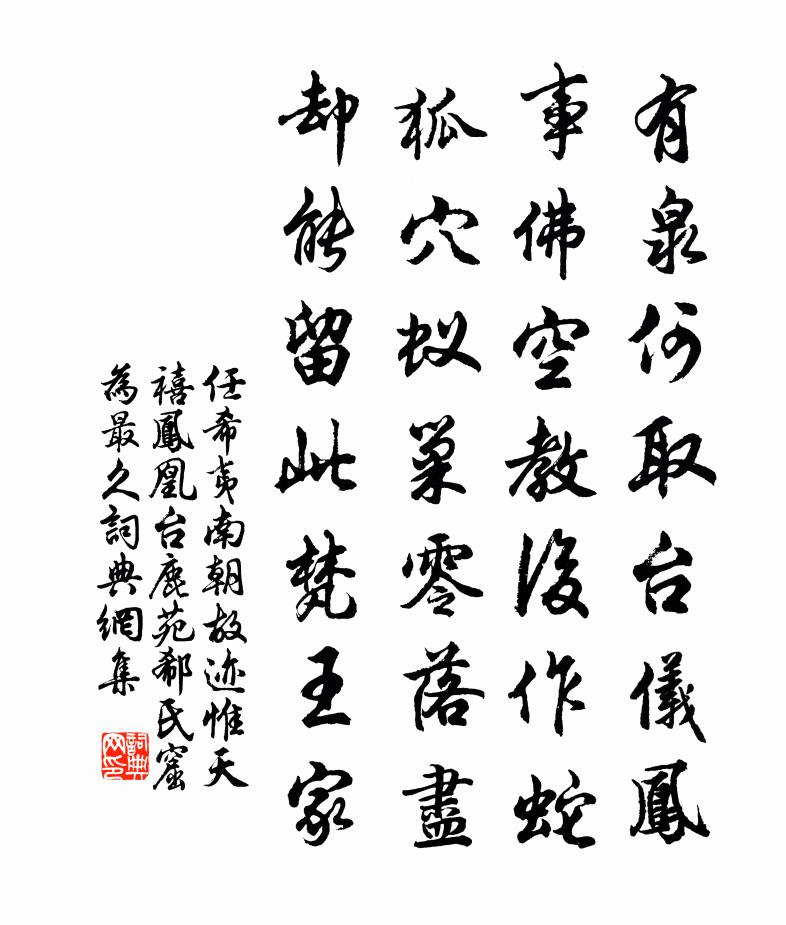 有泉何取台儀鳳
事佛空教後作蛇
狐穴蚁巢零落盡
却能留此梵王家
任希夷南朝故迹惟天
禧鳳凰台鹿苑郗氏窟
為最久詞典網集
詞典网印